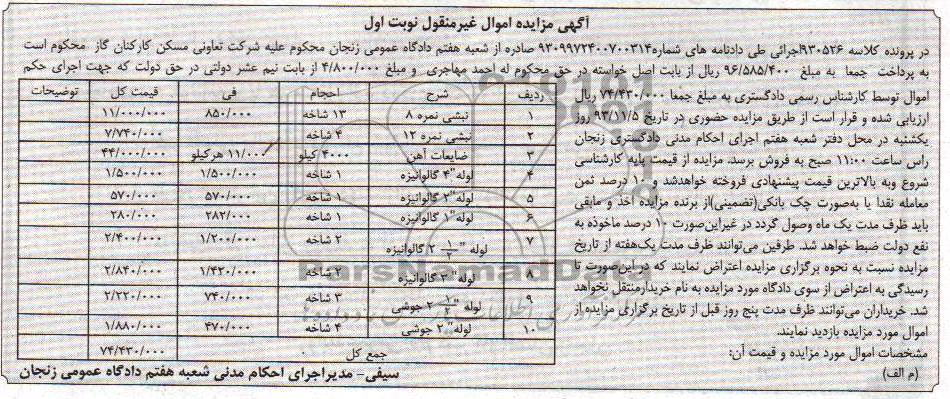 آگهی مزایده اموال غیرمنقول نوبت اول
در پرونده کلاسه ۹۳۰۵۲۶اجرائی طی دادنامه های شماره۹۳۰۹۹۷۲۴۰۰۷۰۰۳۱۴ صادره از شعبه هفتم دادگاه عمومی زنجان محکوم علیه شرکت تعاونی مسکن کارکنان گاز محکوم است
به پرداخت جمعا به مبلغ ۹۶/۵۸۵/۴۰۰ ریال از بابت اصل خواسته در حق محکوم له احمد مهاجری و مبلغ ۴/۸۰۰/۰۰۰ از بابت نیم عشر دولتی در حق دولت که جهت اجرای حکم
اموال توسط کارشناس رسمی دادگستری به مبلغ جمعا ۷۴/۴۳۰/۰۰۰ ریال
ارزیابی شده و قرار است از طریق مزایده حضوری در تاریخ ۹۳/۱۱/۵ روز
یکشنبه در محل دفتر شعبه هفتم اجرای احکام مدنی دادگستری زنجان
راس ساعت ۱۱:۰۰ صبح به فروش برسد. مزایده از قیمت پایه کارشناسی
شروع وبه بالاترین قیمت پیشنهادی فروخته خواهدشد و ۱۰ درصد ثمن
معامله نقدا یا به‌صورت چک بانکی(تضمینی)از برنده مزایده اخذ و مابقی
باید ظرف مدت یک ماه وصول گردد در غیراین‌صورت ۱۰ درصد ماخوذه به
نفع دولت ضبط خواهد شد. طرفین می‌توانند ظرف مدت یک‌هفته از تاریخ
مزایده نسبت به نحوه برگزاری مزایده اعتراض نمایند که در این‌صورت تا
رسیدگی به اعتراض از سوی دادگاه مورد مزایده به نام خریدارمنتقل نخواهد
شد. خریداران می‌توانند ظرف مدت پنج روز قبل از تاریخ برگزاری مزایده از
اموال مورد مزایده بازدید نمایند.
مشخصات اموال مورد مزایده و قیمت آن:
(م الف)
ردیف شرح احجام فی قیمت کل توضیحات
۱ نبشی نمره ۸ ۱۳ شاخه ۸۵۰/۰۰۰ ۱۱/۰۰۰/۰۰۰
۲ نبشی نمره ۱۲ ۴ شاخه ۷/۷۴۰/۰۰۰
۳ ضایعات آهن ۴۰۰۰ کیلو ۱۱/۰۰۰ هرکیلو ۴۴/۰۰۰/۰۰۰
۴ لوله"۴ گالوانیزه ۱ شاخه ۱/۵۰۰/۰۰۰ ۱/۵۰۰/۰۰۰
۵ لوله"۲ گالوانیزه ۱ شاخه ۵۷۰/۰۰۰ ۵۷۰/۰۰۰
۶ لوله"۱ گالوانیزه ۱ شاخه ۲۸۲/۰۰۰ ۲۸۰/۰۰۰
۷ لوله "۱/۲ ۲ گالوانیزه ۲ شاخه ۱/۲۰۰/۰۰۰ ۲/۴۰۰/۰۰۰
۸ لوله "۳ گالوانیزه ۲ شاخه ۱/۴۲۰/۰۰۰ ۲/۸۴۰/۰۰۰
۹ لوله "۱/۲ ۲ جوشی ۳ شاخه ۷۴۰/۰۰۰ ۲/۲۲۰/۰۰۰
۱۰ لوله"۲ جوشی ۴ شاخه ۴۷۰/۰۰۰ ۱/۸۸۰/۰۰۰
جمع کل ۷۴/۴۳۰/۰۰۰
سیفی- مدیراجرای احکام مدنی شعبه هفتم دادگاه عمومی زنجان
ParsNamadData